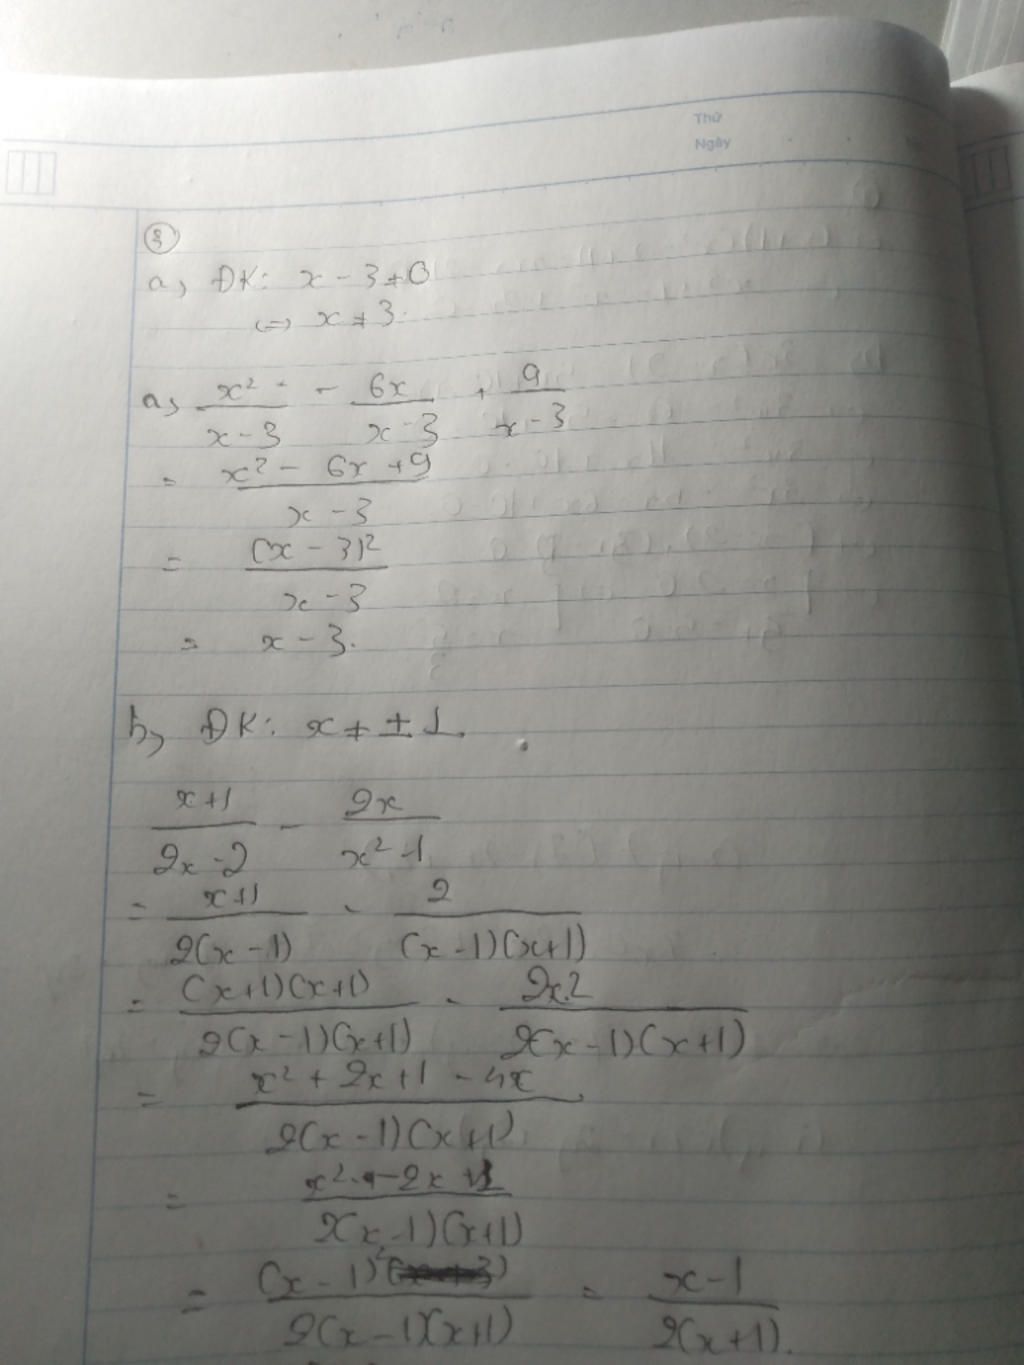 Thứ
Ngày
③
a, ĐK: x - 3 ≠ 0
<=> x ≠ 3.
a, x²/(x - 3) - 6x/(x - 3) + 9/(x - 3)
= (x² - 6x + 9)/(x - 3)
= (x - 3)²/(x - 3)
= x - 3.
b, ĐK: x ≠ ± 1.
(x+1)/(2x - 2) - 2x/(x² - 1)
= (x+1)/(2(x - 1)) - 2/((x - 1)(x+1))
= (x+1)(x+1)/(2(x - 1)(x+1)) - 2x.2/(2(x - 1)(x+1))
= (x² + 2x + 1 - 4x)/(2(x - 1)(x+1)
= (x² - 2x + 1)/(2(x - 1)(x+1))
= (x - 1)²/(2(x - 1)(x+1)) = (x - 1)/(2(x+1)).